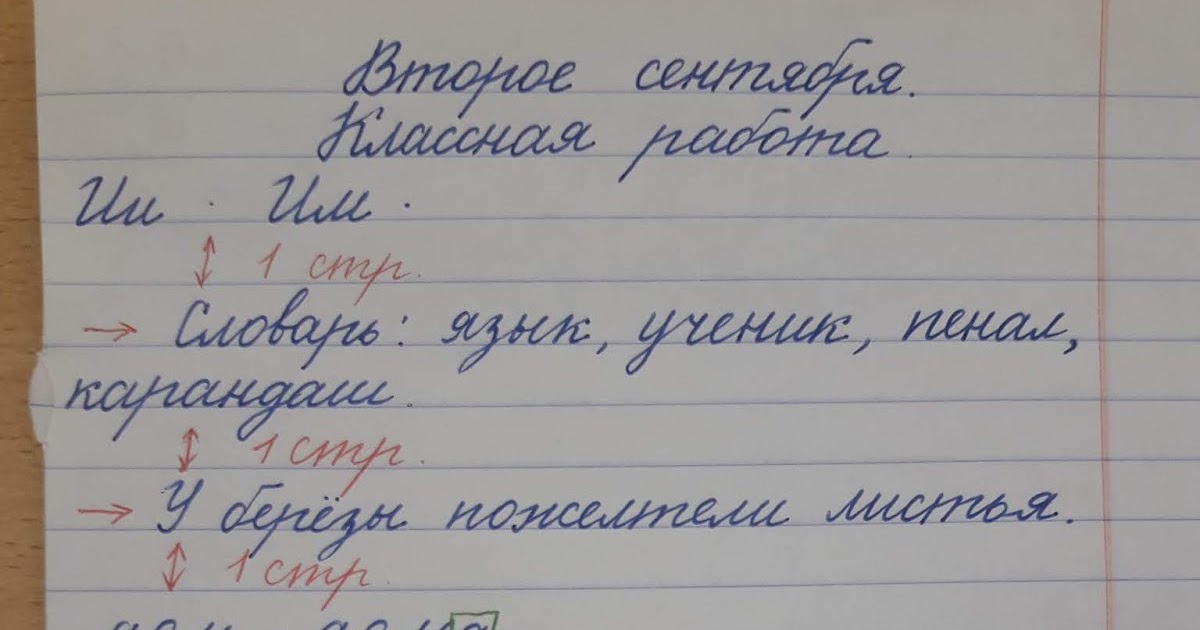 Второе сентября.
Классная работа.
Ии . Им .
1 стр.
Словарь: язык, ученик, пенал,
карандаш.
1 стр.
У берёзы пожелтели листья.
1 стр.